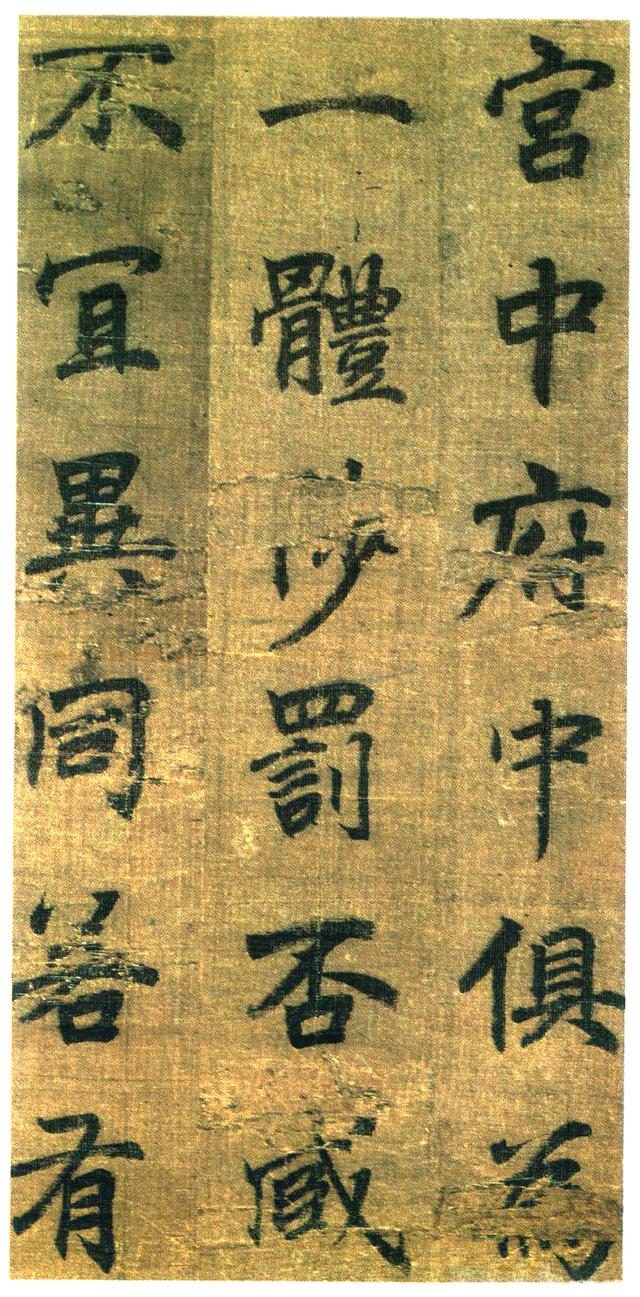 宮中府中俱為
一體罰否臧
不冝異同若有